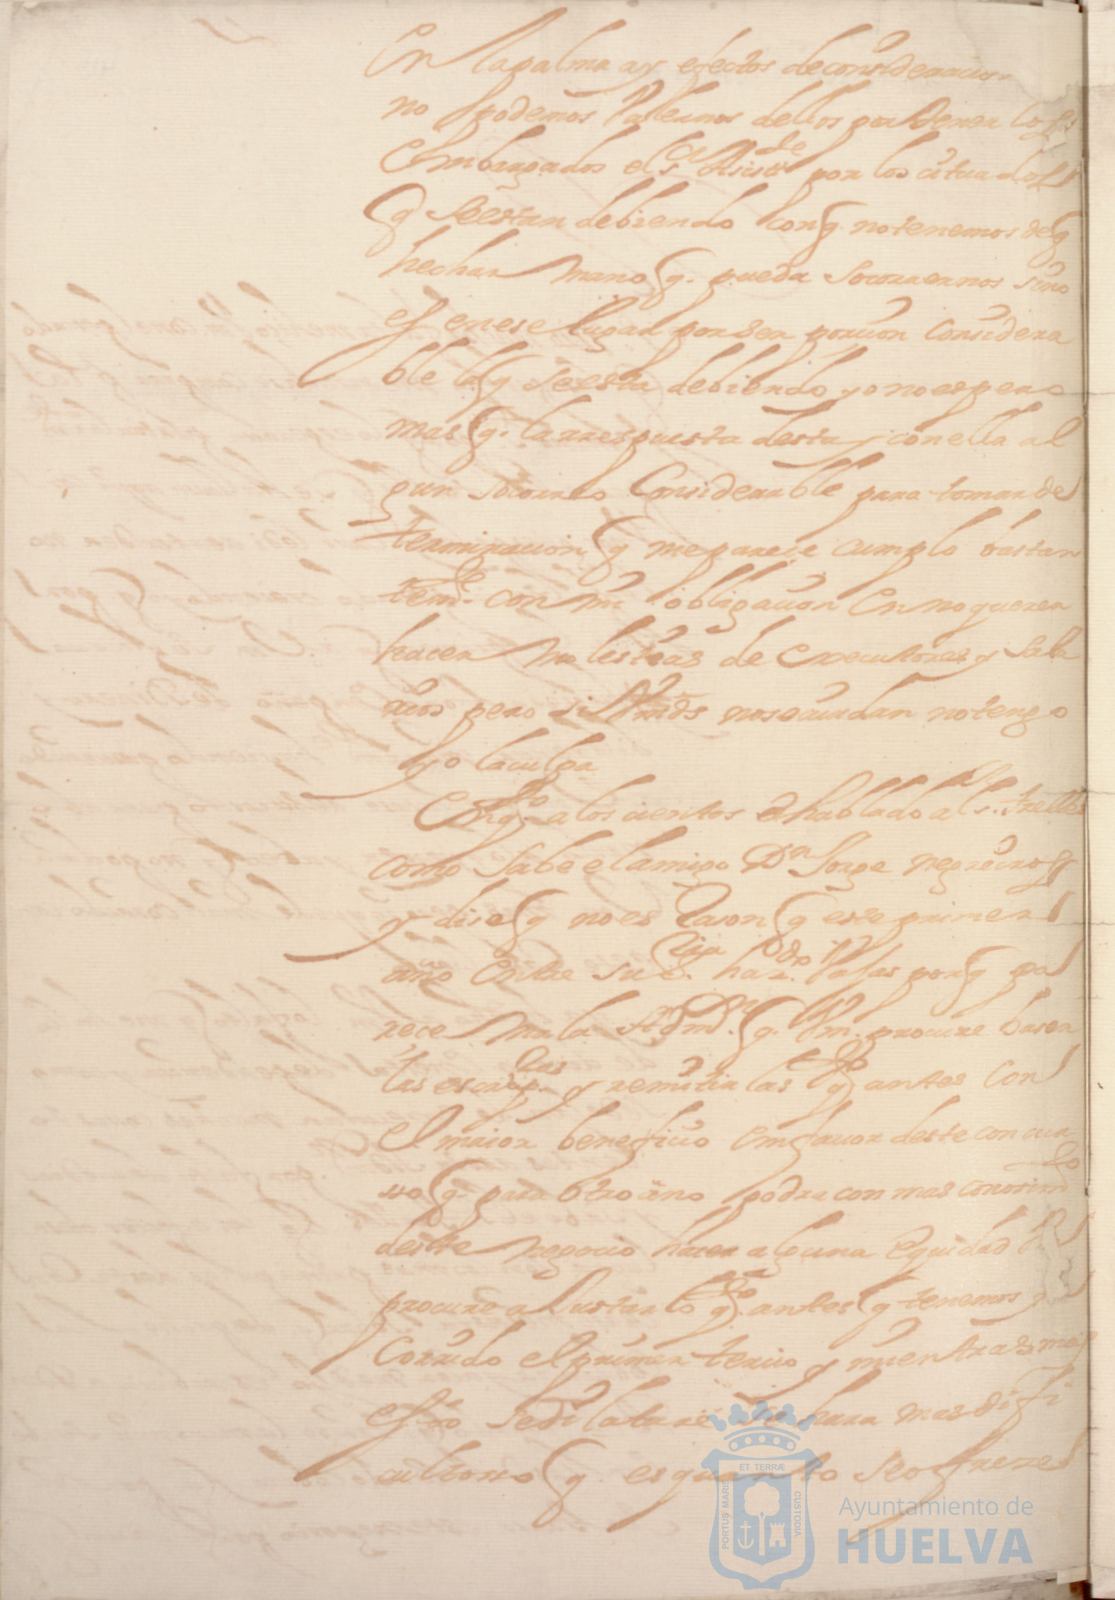 En la palma ay efectos de consideracion
no podemos Valernos dellos por tener los
embargados el s.r Asis.te por los cituados
q se estan debiendo conq no tenemos de q
hechar mano q. pueda socorrernos sino
es en ese lugar por ser porcion considera
ble la q se esta debiendo yo no espero
mas q. la rrespuesta desta y con ella al
gun socorro Considerable para tomar de
terminacion q me parece cumplo bastan
tem.te con mi obligacion En no querer
hacer molestias de executores y Sala
rios pero si Vmds no se cuidan no tengo
yo la culpa
En q.to a los cientos e hablado al s.r
como sabe el amigo Dn Jorge negreiros
y dise q no es Rason q este primer
año entre su haz.da porq pa
rece mala Adm.on q. Vm. procure hacer
las escrip.ras y remitirlas q.to antes con
el maior beneficio em favor deste concur
so q. para otro año podra con mas conosim.to
deste negocio hacer alguna equidad
procure ajustarlo q.to antes q tenemos
Corrido el primer tercio y mientras mas
se dilatare sera mas difi
cultoso q. es quanto se ofreze
ET TERRÆ
PORTUS MARIS
CUSTODIA
Ayuntamiento de
HUELVA